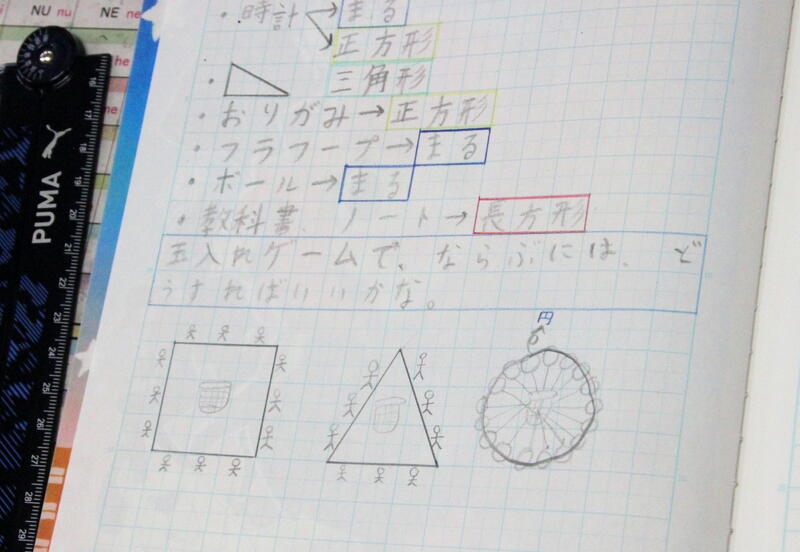 NU nu
NE ne
he
me
PUMA
16
17
18
19
20
21
22
23
24
25
26
27
28
29
・時計→まる
正方形
・三角形
・おりがみ→正方形
・フラフープ→まる
・ボール→まる
・教科書、ノート→長方形
玉入れゲームで、ならぶには、ど
うすればいいかな。
円